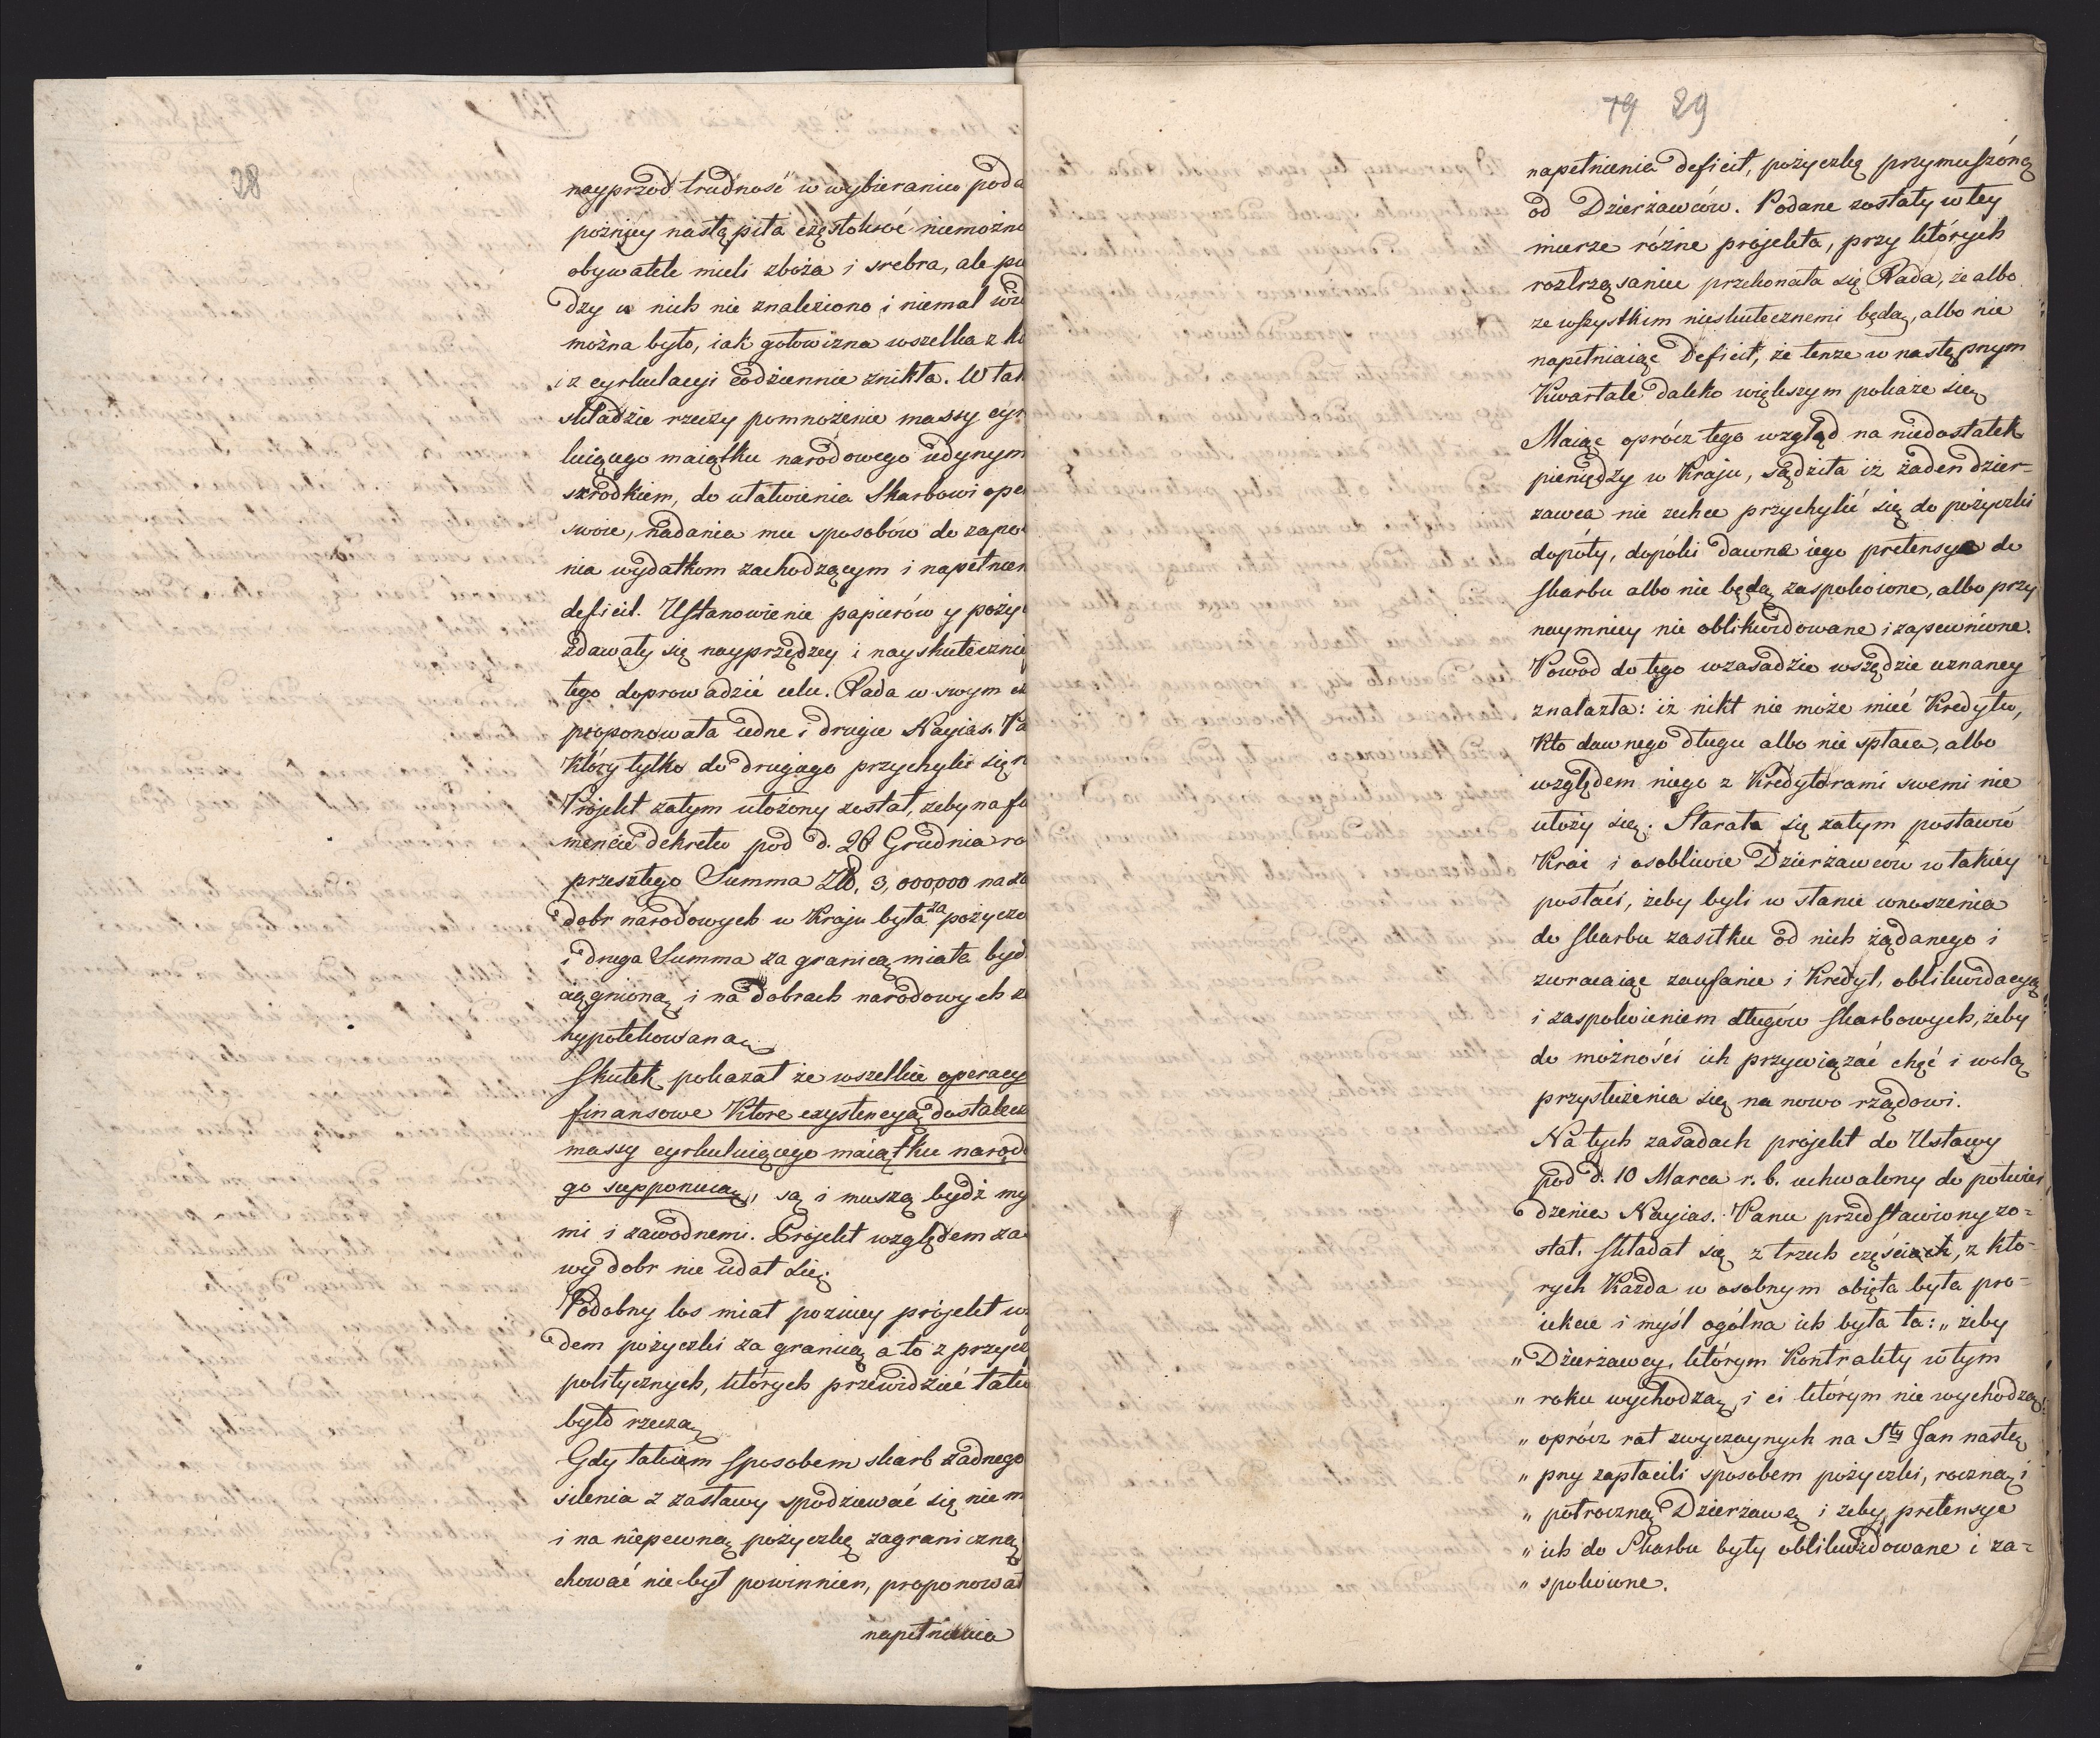 28
nayprzod trudność w wybieraniu poda
pozniey nastąpiła częstokroć niemożno
obywatele mieli zboża i srebra, ale pie
dzy u nich nie znaleziono i niemal wid
można było, iak gotowizna wszelka z k
i z cyrkulacyi codziennie znikła. W tak
składzie rzeczy pomnożenie massy cyr
luiącego maiątku narodowego iedynym
szrodkiem, do ułatwienia Skarbowi oper
swoie, nadania mu sposobów do zapo
nia wydatkom zachodzącym i napełnien
deficit. Ustanowienie papierów y poży
zdawały się nayprzędzey i nayskuteczniey
tego doprowadzić celu. Rada w swym cz
proponowała iedne i drugie Nayias. Pa
Który tylko do drugiego przychylić się r
Projekt zatym ułożony został, żeby na fu
mencie dekretu pod d. 28 Grudnia ro
przeszłego Summa Złł. 3,000,000 na za
dobr narodowych w Kraju była za pożyczo
i druga Summa za granicą miała być
ciągnioną i na dobrach narodowych z
hypotekowaną.
Skutek pokazał że wszelkie operacye
finansowe Które exystencyą dostatecz
massy cyrkuluiącego maiątku narodo
go supponuią, są i muszą bydź my
mi i zawodnemi. Projekt względem za
wy dobr nie udał się.
Podobny los miał pozniey projekt wz
dem pożyczki za granicą a to z przycz
politycznych, których przewidzieć łatw
było rzeczą
Gdy takiem sposobem skarb żadnego
silenia z zastawy spodziewać się nie m
i na niepewną pożyczkę zagraniczną
chować nie był powinnien, proponował
napełnienia
19 29
napełnienia deficit, pożyczkę przymuszóną
od Dzierżawców. Podane zostały w tey
mierze różne projekta, przy których
roztrząsaniu przekonała się Rada, że albo
ze wszystkim nieskutecznemi będą, albo nie
napełniaiąc Deficit, że tenże w następnym
Kwartale daleko większym pokaże się
Maiąc oprócz tego wzgląd na niedostatek
pieniędzy w Kraju, sądziła iż żaden dzier-
żawca nie zechce przychylić się do pożyczki
dopóty, dopóki dawne iego pretensye do
skarbu albo nie będą zaspokoione, albo przy
naymniey nie oblikwidowane i zapewnione.
Powod do tego w zasadzie wszędzie uznaney
znalazła: iż nikt nie może mieć Kredytu,
Kto dawnego długu albo nie spłaca, albo
względem niego z Kredytorami swemi nie
ułoży się. Starała się zatym postawić
Kraj i osobliwie Dzierżawców w takiey
postaci, żeby byli w stanie wnoszenia
do skarbu zasiłku od nich żądanego i
zwracaiąc zaufanie i Kredyt, oblikwidacyą
i zaspokoieniem długów skarbowych, żeby
do możności ich przywiązać chęć i wolą
przysłużenia się na nowo rządowi.
Na tych zasadach projekt do Ustawy
pod d. 10 Marca r. b. uchwalony do potwier
dzenia Nayias. Panu przedstawiony zo-
stał. Składał się z trzech częściach, z kto-
rych Każda w osobnym obięta była pro-
iekcie i myśl ogólna ich była ta: „ żeby
„ Dzierżawcy, którym Kontrakty w tym
„ roku wychodzą, i ci którym nie wychodzą,
„ oprócz rat zwyczaynych na Sty Jan nastę
„ pny zapłacili sposobem pożyczki, roczną i
„ pòłroczną Dzierżawę i żeby pretensye
„ ich do Skarbu były oblikwidowane i za-
„ spokoione.